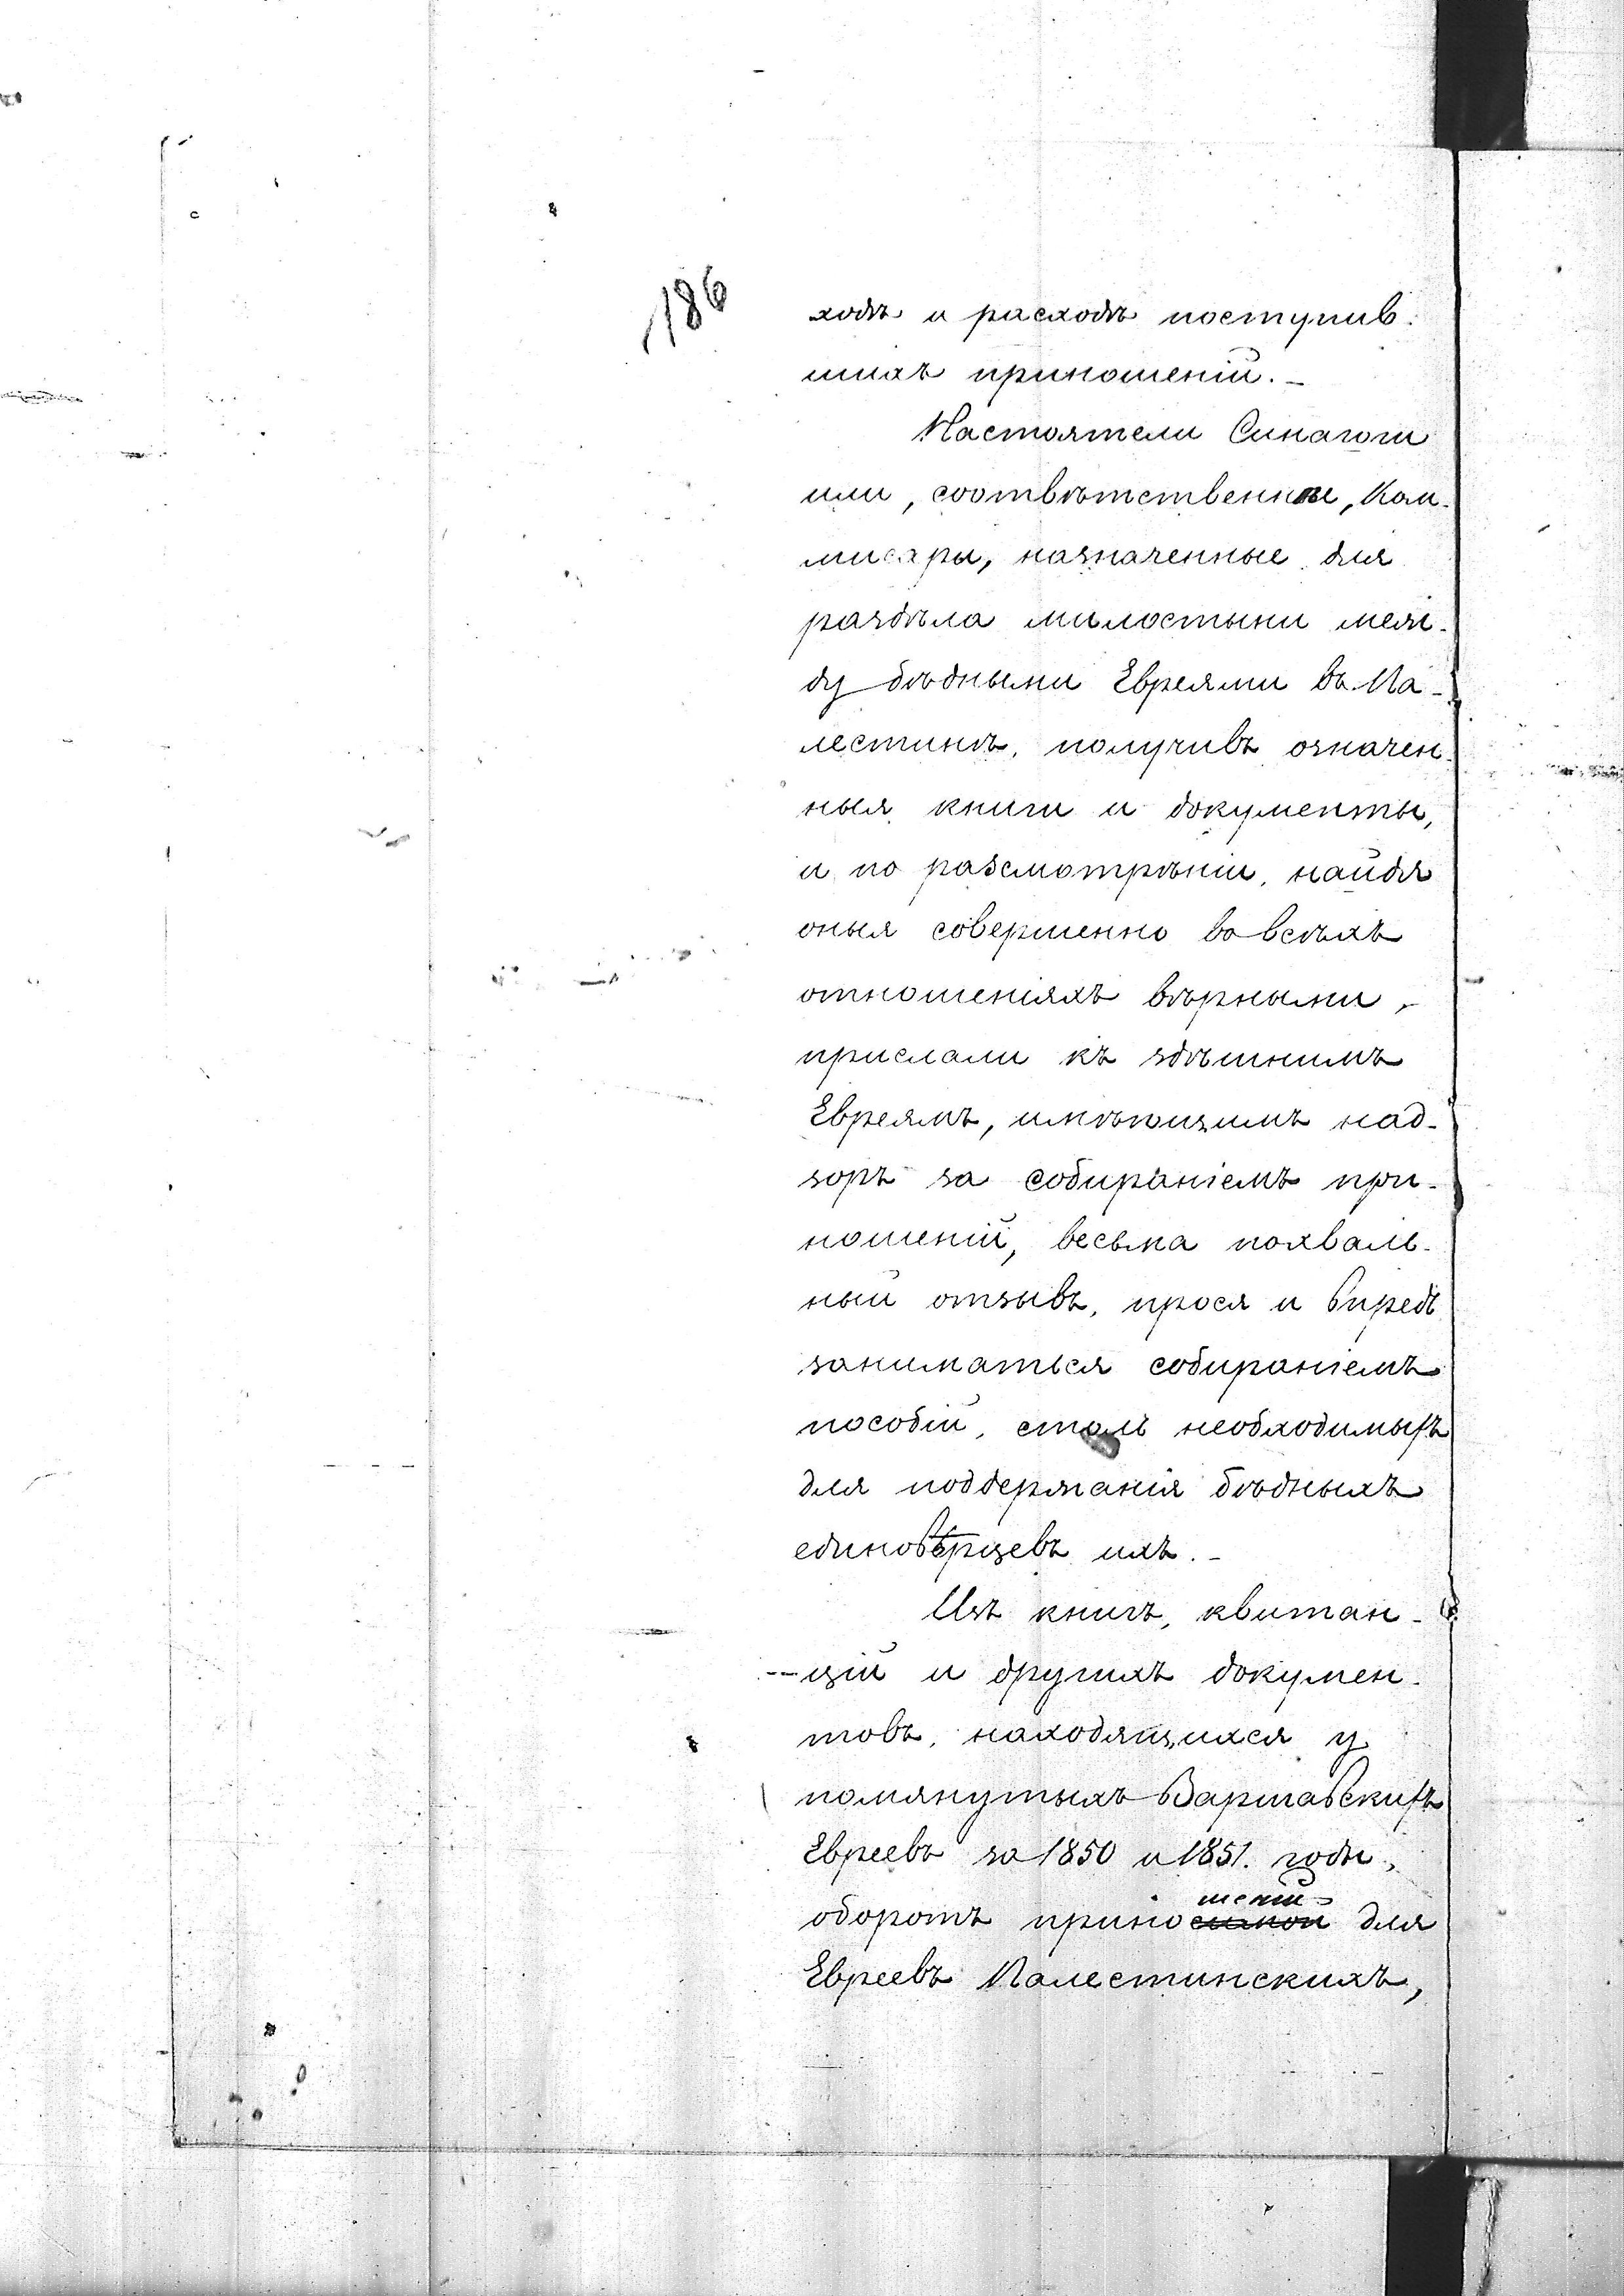 186
ходъ и расходъ поступив-
шихъ приношеній.–
Настоятели Синагоги
или, соотвѣтственные, Ком-
мисары, назначенные для
раздѣла милостыни меж-
ду бѣдными Евреями въ Па-
лестинѣ, получивъ означен-
ныя книги и документы,
и по разсмотрѣніи, найдя
оныя совершенно во всѣхъ
отношеніяхъ вѣрными,
прислали къ здѣшнимъ
Евреямъ, имѣющимъ над-
зоръ за собираніемъ при-
ношеній, весьма похваль-
ный отзывъ, прося и впредь
заниматься собираніемъ
пособій, столь необходимыхъ
для поддержанія бѣдныхъ
единовѣрцевъ ихъ.–
Изъ книгъ, квитан-
цій и другихъ докумен-
товъ, находящихся у
помянутыхъ Варшавскихъ
Евреевъ за 1850 и 1851. годы,
оборотъ приношеній для
Евреевъ Палестинскихъ,